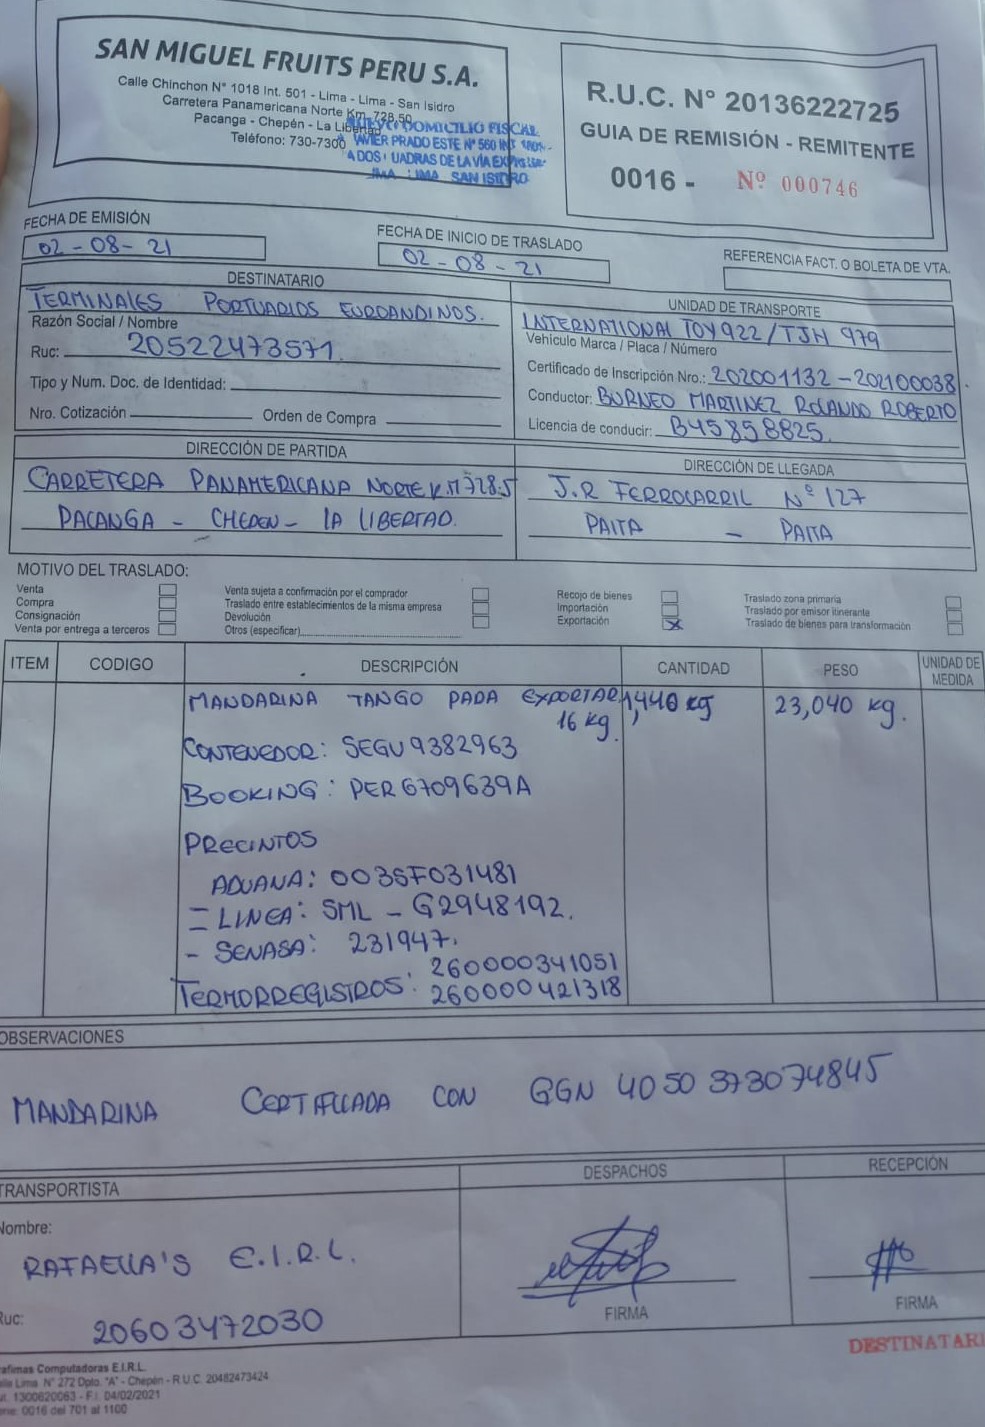 SAN MIGUEL FRUITS PERU S.A.
Calle Chinchon N° 1018 Int. 501 - Lima - Lima - San Isidro
Carretera Panamericana Norte Km. 728.50
Pacanga - Chepén - La Libertad
Teléfono: 730-7300
DOMICILIO FISCAL
PRADO ESTE N° 560
DE LA VIA
LIMA SAN ISIDRO
R.U.C. N° 20136222725
GUIA DE REMISIÓN - REMITENTE
0016 - Nº 000746
FECHA DE EMISIÓN
02-08-21
FECHA DE INICIO DE TRASLADO
02-08-21
REFERENCIA FACT. O BOLETA DE VTA.
DESTINATARIO
TERMINALES PORTUARIOS EUROANDINOS.
Razón Social / Nombre
Ruc: 20522473571.
Tipo y Num. Doc. de Identidad:
Nro. Cotización Orden de Compra
UNIDAD DE TRANSPORTE
INTERNATIONAL TOY922/TJH 979
Vehículo Marca / Placa / Número
Certificado de Inscripción Nro.: 202001132-202100038.
Conductor: BURNEO MARTINEZ ROLANDO ROBERTO
Licencia de conducir: B45858825.
DIRECCIÓN DE PARTIDA
CARRETERA PANAMERICANA NORTE KM 728.5
PACANGA - CHEPEN - LA LIBERTAD.
DIRECCIÓN DE LLEGADA
J.R FERROCARRIL Nº 127
PAITA - PAITA
MOTIVO DEL TRASLADO:
Venta
Compra
Consignación
Venta por entrega a terceros
Venta sujeta a confirmación por el comprador
Traslado entre establecimientos de la misma empresa
Devolución
Otros (especificar)
Recojo de bienes
Importación
Exportación X
Traslado zona primaria
Traslado por emisor itinerante
Traslado de bienes para transformación
ITEM CODIGO DESCRIPCIÓN CANTIDAD PESO UNIDAD DE MEDIDA
MANDARINA TANGO PARA EXPORTAR 1,440 kg 23,040 kg.
16 kg.
CONTENEDOR: SEGU 9382963
BOOKING: PER6709639A
PRECINTOS
ADUANA: 003SF031481
= LINEA: SML - G2948192.
- SENASA: 231947.
TERMORREGISTROS: 260000341051
260000421318
OBSERVACIONES
MANDARINA CERTIFICADA CON GGN 4050373074845
TRANSPORTISTA
Nombre:
RAFAELLA'S E.I.R.L.
Ruc:
20603472030
DESPACHOS
FIRMA
RECEPCIÓN
FIRMA
DESTINATARI
Computadoras E.I.R.L.
Lima N° 272 Dpto. "A" - Chepén - R.U.C. 20482473424
1300620063 - F.I. 04/02/2021
0016 del 701 al 1100